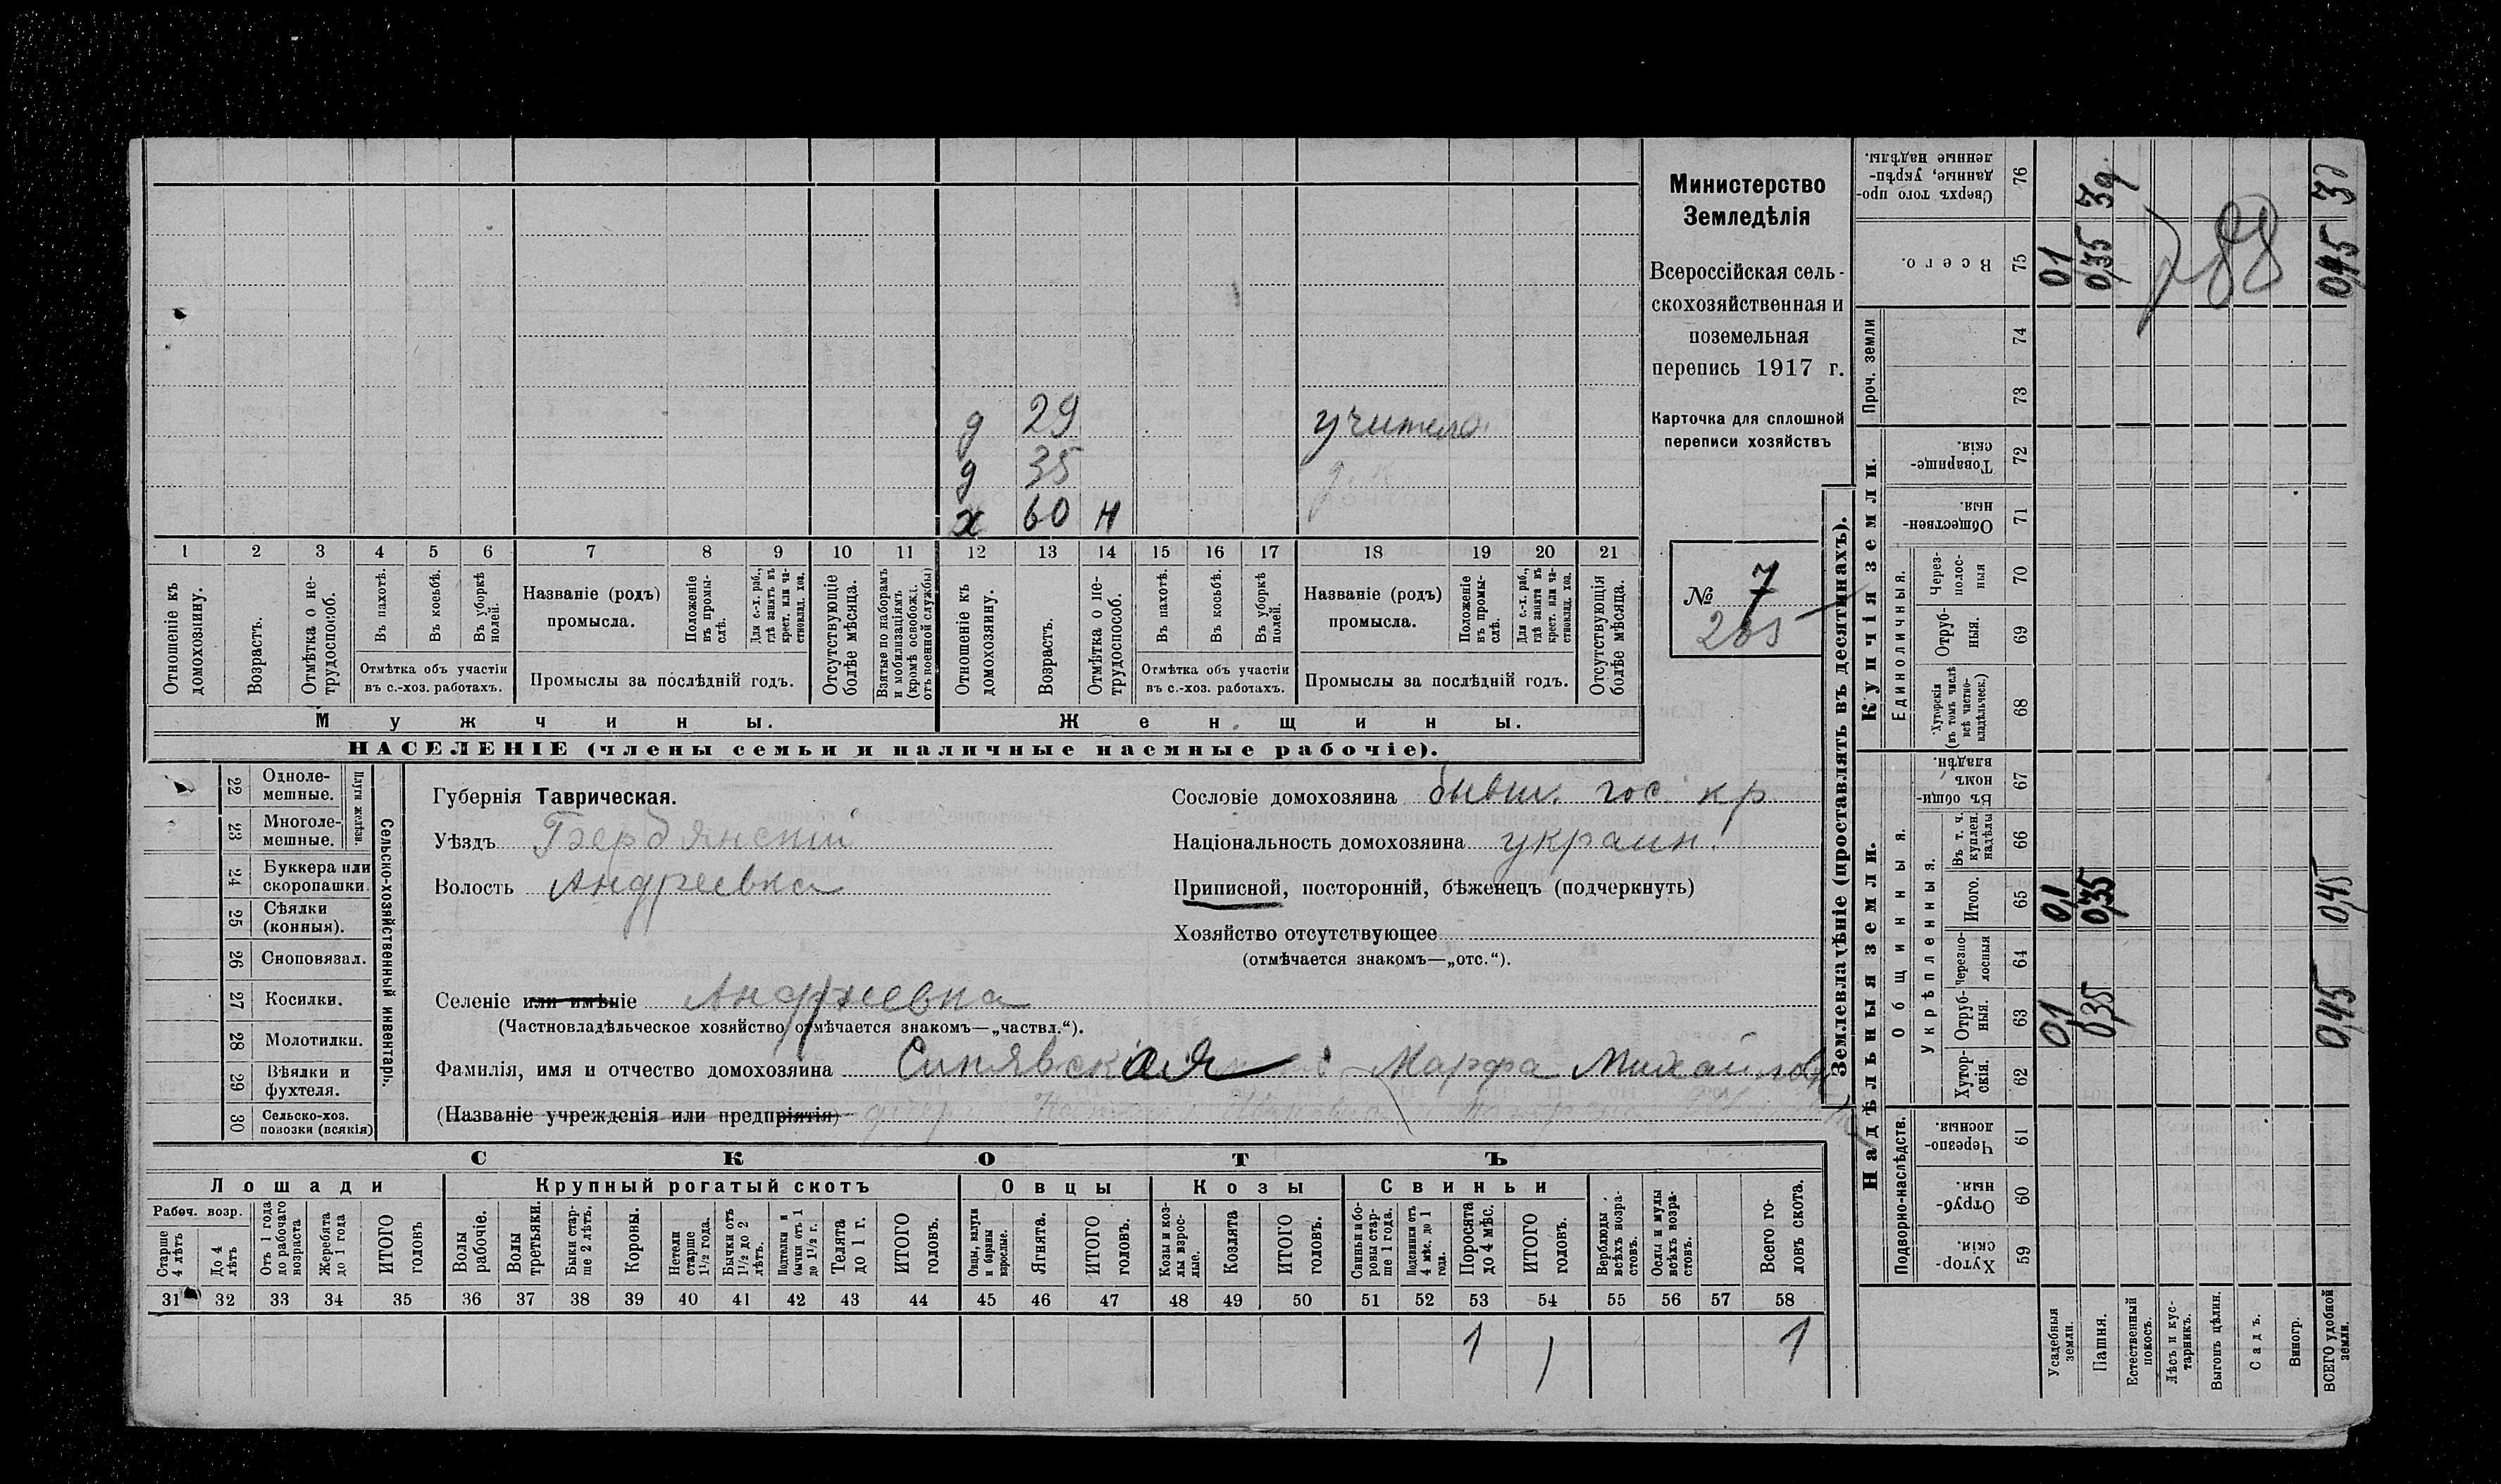 Министерство
Земледѣлія
Всероссійская сель-
скохозяйственная и
поземельная
перепись 1917 г.
Карточка для сплошной
переписи хозяйствъ
№ 7
265
д 29 учител
д 35
х 60 н
1 2 3 4 5 6 7 8 9 10 11 12 13 14 15 16 17 18 19 20 21
Отношеніе къ домохозяину.
Возрастъ.
Отмѣтка о не-трудоспособ.
Въ пахотѣ.
Въ косьбѣ.
Въ уборкѣ полей.
Отмѣтка объ участіи
въ с.-хоз. работахъ.
Названіе (родъ)
промысла.
Положеніе въ промы-слѣ.
Для с.-х. раб., гдѣ занятъ въ крест. или ча-стновлад. хоз.
Промыслы за послѣдній годъ.
Отсутствующіе болѣе мѣсяца.
Взятые по наборамъ и мобилизаціямъ (кромѣ освобожд. отъ военной службы)
Отношеніе къ домохозяину.
Возрастъ.
Отмѣтка о не-трудоспособ.
Въ пахотѣ.
Въ косьбѣ.
Въ уборкѣ полей.
Отмѣтка объ участіи
въ с.-хоз. работахъ.
Названіе (родъ)
промысла.
Положеніе въ промы-слѣ.
Для с.-х. раб., гдѣ занята въ крест. или ча-стновлад. хоз.
Промыслы за послѣдній годъ.
Отсутствующія болѣе мѣсяца.
Мужчины. Женщины.
НАСЕЛЕНІЕ (члены семьи и наличные наемные рабочіе).
Сельско-хозяйственный инвентарь.
Плуги желѣзн.
22 Одноле-мешные.
23 Многоле-мешные.
24 Буккера или скоропашки.
25 Сѣялки (конныя).
26 Сноповязал.
27 Косилки.
28 Молотилки.
29 Вѣялки и фухтеля.
30 Сельско-хоз. повозки (всякія)
Губернія Таврическая.
Уѣздъ Бердянскій
Волость Андреевка
Селеніе или имѣніе Андреевка
(Частновладѣльческое хозяйство отмѣчается знакомъ—„частвл.“).
Фамилія, имя и отчество домохозяина Синявская Марфа Михайлов
(Названіе учрежденія или предпріятія)
Сословіе домохозяина бывш. гос. кр
Національность домохозяина украин.
Приписной, посторонній, бѣженецъ (подчеркнуть)
Хозяйство отсутствующее
(отмѣчается знакомъ—„отс.“).
СКОТЪ
Лошади Крупный рогатый скотъ Овцы Козы Свиньи
Рабоч. возр.
Старше 4 лѣтъ
До 4 лѣтъ
Отъ 1 года до рабочаго возраста
Жеребята до 1 года
ИТОГО головъ
Волы рабочіе.
Волы третьяки.
Быки стар-ше 2 лѣтъ.
Коровы.
Нетели старше 1½ года.
Бычки отъ 1½ до 2 лѣтъ.
Подтелки и бычки отъ 1 до 1½ г.
Телята до 1 г.
ИТОГО головъ.
Овцы, валухи и бараны взрослые.
Ягнята.
ИТОГО головъ.
Козы и коз-лы взрос-лые.
Козлята
ИТОГО головъ.
Свиньи и бо-ровы стар-ше 1 года.
Подсвинки отъ 4 мѣс. до 1 года.
Поросята до 4 мѣс.
ИТОГО головъ.
Верблюды всѣхъ возра-стовъ.
Ослы и мулы всѣхъ возра-стовъ.
Всего го-ловъ скота.
31 32 33 34 35 36 37 38 39 40 41 42 43 44 45 46 47 48 49 50 51 52 53 54 55 56 57 58
1 1 1
Землевладѣніе (проставлять въ десятинахъ).
Надѣльныя земли. Купчія земли.
Проч. земли
Подворно-наслѣдств.
Общинныя.
Укрѣпленныя.
Единоличныя.
Сверхъ того про-данные, укрѣп-ленные надѣлы. 76
Всего. 75
74
73
Товарище-скія. 72
Обществен-ныя. 71
Через-полос-ныя 70
Отруб-ныя. 69
Хуторскія (въ томъ числѣ всѣ частно-владѣльческ.) 68
Въ общи-номъ владѣн. 67
Въ т. ч. куплен. надѣлы 66
Итого. 65
Черезпо-лосныя 64
Отруб-ныя. 63
Хутор-скія. 62
Черезпо-лосныя. 61
Отруб-ныя. 60
Хутор-скія. 59
Усадебныя земли. 01 0,1 01
Пашня. 035 0,35 0,35 3д.
Естественный покосъ.
Лѣсъ и кус-тарникъ.
Выгонъ цѣлин.
Садъ.
Виногр.
ВСЕГО удобной земли. 0,45 0,45 045
88